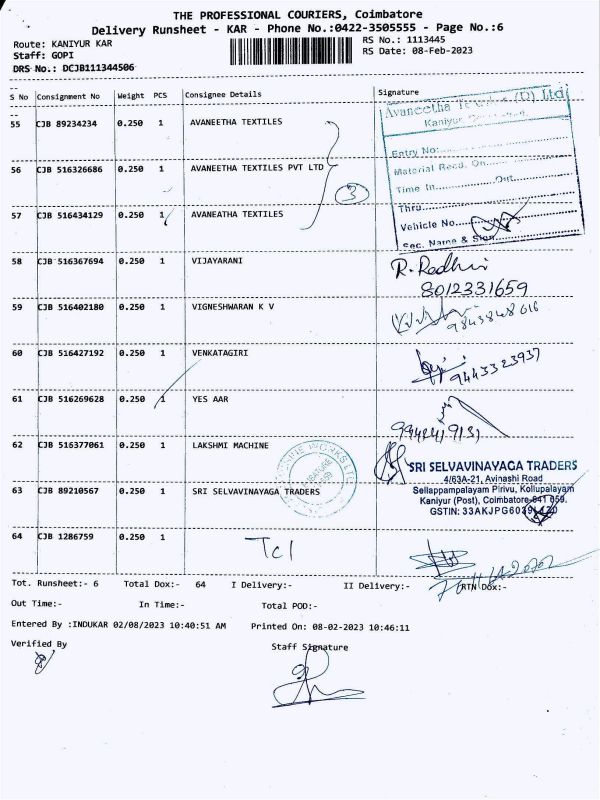 THE PROFESSIONAL COURIERS, Coimbatore
Delivery Runsheet - KAR - Phone No.:0422-3505555 - Page No.:6
Route: KANIYUR KAR
RS No.: 1113445
Staff: GOPI
RS Date: 08-Feb-2023
DRS No.: DCJB111344506
S No Consignment No Weight PCS Consignee Details Signature
55 CJB 89234234 0.250 1 AVANEETHA TEXTILES
56 CJB 516326686 0.250 1 AVANEETHA TEXTILES PVT LTD
57 CJB 516434129 0.250 1 AVANEATHA TEXTILES
3
Avaneetha (P) Ltd
Kaniyur
Entry No:
Material Recd. On
Time In Out
Thru
Vehicle No
Sec. Name & Sign
58 CJB 516367694 0.250 1 VIJAYARANI
R. Radhi
8012331659
59 CJB 516402180 0.250 1 VIGNESHWARAN K V
9843848016
60 CJB 516427192 0.250 1 VENKATAGIRI
9443323937
61 CJB 516269628 0.250 1 YES AAR
62 CJB 516377061 0.250 1 LAKSHMI MACHINE
63 CJB 89210567 0.250 1 SRI SELVAVINAYAGA TRADERS
SRI SELVAVINAYAGA TRADERS
4/63A-21, Avinashi Road
Sellappampalayam Pirivu, Kollupalayam
Kaniyur (Post), Coimbatore-641 659.
GSTIN: 33AKJPG60
64 CJB 1286759 0.250 1
Tcl
Tot. Runsheet:- 6 Total Dox:- 64 I Delivery:- II Delivery:- RTN Dox:-
Out Time:- In Time:- Total POD:-
Entered By :INDUKAR 02/08/2023 10:40:51 AM Printed On: 08-02-2023 10:46:11
Verified By
Staff Signature